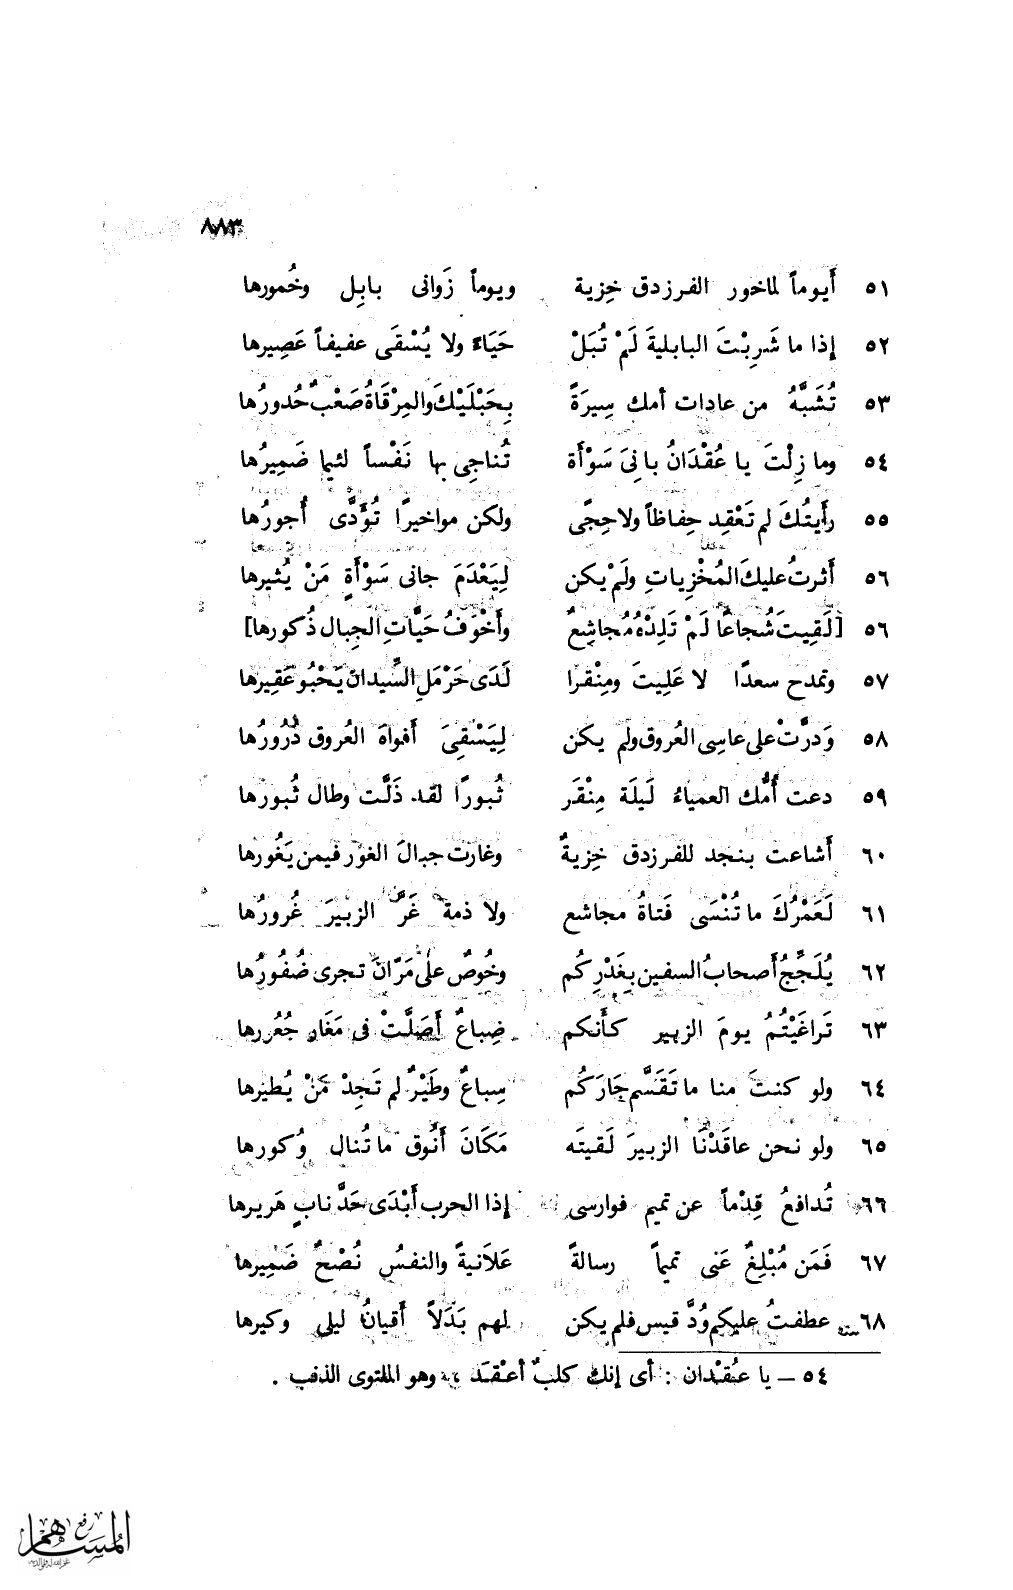 ٨٨٣
٥١ أَيوماً لماخور الفرزدق خِزية ويوماً زَوانى بابِل وخُمورها
٥٢ إذا ما شَرِبْتَ البابلية لَمْ تُبَلْ حَيَاءً ولا يُسْقَى عفيفاً عَصِيرها
٥٣ تُشَبَّهُ من عادات أمك سِيرَةً بِحَبْلَيْكَ والمِرْقَاةُ صَعْبٌ حُدورُها
٥٤ وما زِلْتَ يا عُقْدَانُ بانِىَ سَوْأَة تُناجِى بها نَفْساً لئيما ضَمِيرُها
٥٥ رأَيتُكَ لم تَعْقِد حِفاظاً ولا حِجًى ولكن مواخيرًا تُؤَدَّى أُجورُها
٥٦ أَثرتُ عليكَ المُخْزِياتِ ولَمْ يكن لِيَعْدَمَ جانى سَوْأَةٍ مَنْ يُثيرها
٥٦ [لَقِيتَ شُجاعًا لَمْ تَلِدْهُ مُجاشِعٌ وأَخْوَفُ حَيَّاتِ الجِبال ذُكورها]
٥٧ وتمدح سعدًا لا عَلِيتَ ومِنْقرا لَدَى حَرْمَلِ السِّيدان يَحْبُو عَقِيرها
٥٨ وَدرَّتْ على عاسِى العُروق ولم يكن لِيَسْقِىَ أفواهَ العُروق دُرُورُها
٥٩ دعت أُمُّك العمياءُ لَيلَة مِنْقَر ثُبورًا لقد ذَلَّت وطال ثُبورُها
٦٠ أَشاعت بنجد للفرزدق خِزيةٌ وغارت جبالَ الغوْر فيمن يَغُورها
٦١ لَعَمْرُكَ ما تُنْسَى فَتاةُ مجاشع ولا ذمة غَرَّ الزبيرَ غُرورُها
٦٢ يُلَجِّجُ أَصحابُ السفين بِغَدْرِكُم وخُوصٌ على مَرّانَ تجرى ضُفُورُها
٦٣ تَراغَيْتُمُ يومَ الزبير كأَنكم ضِباعٌ أَصَلَّتْ فى مَغَارٍ جُعُررها
٦٤ ولو كنتَ منا ما تَقَسَّم جَارَكُم سِباعٌ وطَيْرٌ لم تَجِدْ مَنْ يُطيرها
٦٥ ولو نحن عاقَدْنَا الزبيرَ لَقيتَه مَكَانَ أَنُوق ما تُنال وُكورها
٦٦ تُدافعُ قِدْماً عن تميم فوارسى إذا الحرب أَبْدَى حَدَّ نابٍ هَريرها
٦٧ فَمَن مُبْلِغٌ عَنى تميماً رسالةً عَلاَنيةً والنفسُ نُصْحٌ ضَمِيرها
٦٨ عطفتُ عليكم وُدَّ قيس فلم يكن لهم بَدَلاً أَقيانُ ليلى وكيرها
٥٤ – يا عُقْدان : أى إنك كلبٌ أعْقَدَ ، وهو الملتوى الذنب .